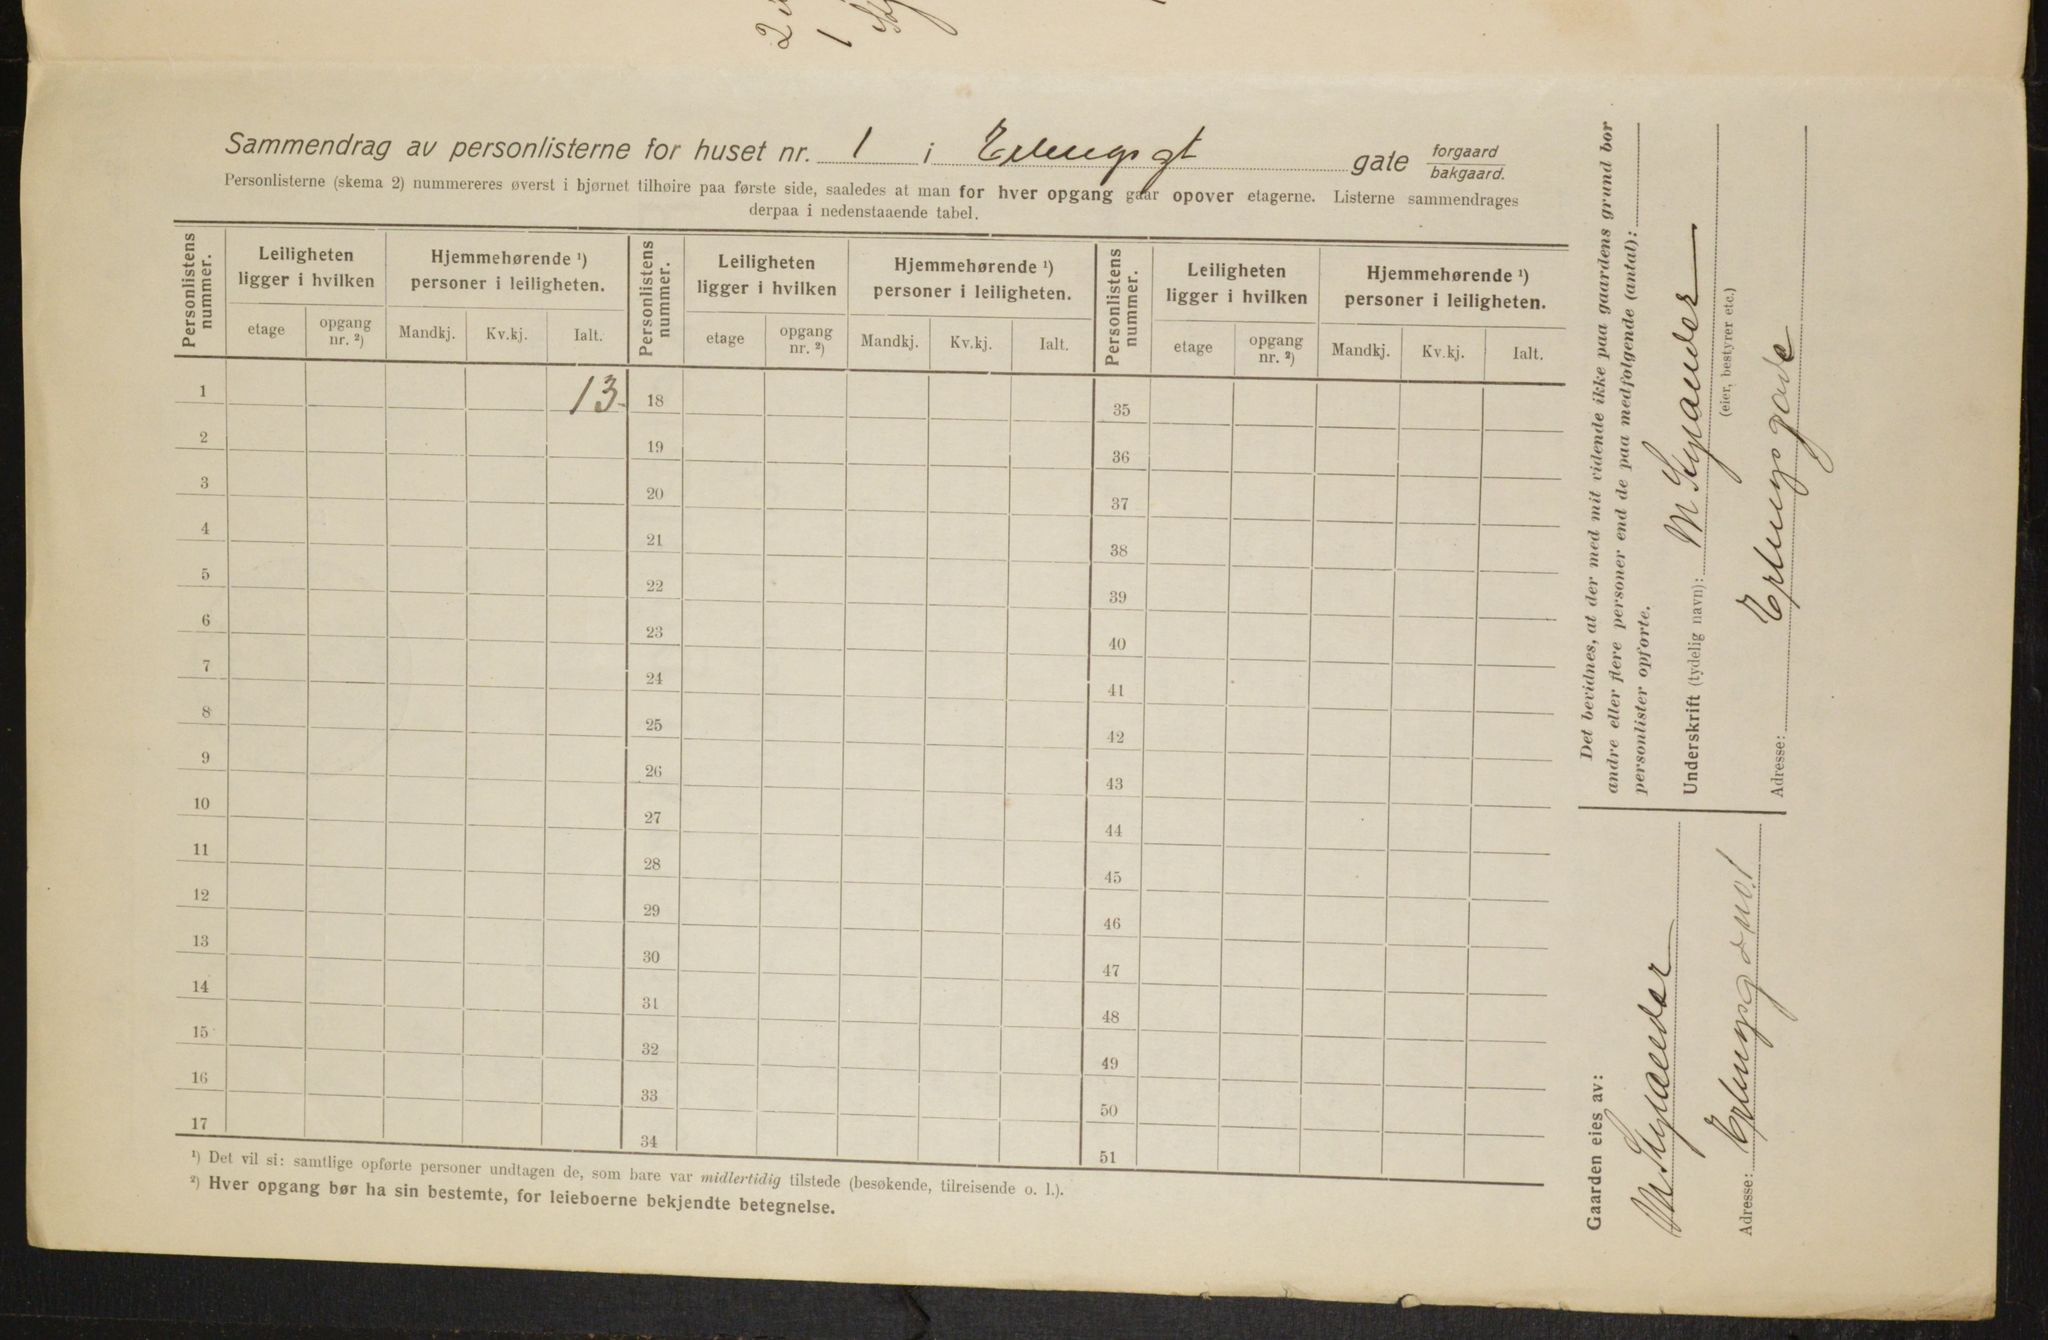 2
1
Sammendrag av personlisterne for huset nr. 1 i Erlingsgt gate forgaard bakgaard.
Personlisterne (skema 2) nummereres øverst i bjørnet tilhøire paa første side, saaledes at man for hver opgang gaar opover etagerne. Listerne sammendrages
derpaa i nedenstaaende tabel.
Personlistens nummer.
Leiligheten ligger i hvilken
Hjemmehørende ¹) personer i leiligheten.
Personlistens nummer.
Leiligheten ligger i hvilken
Hjemmehørende ¹) personer i leiligheten.
Personlistens nummer.
Leiligheten ligger i hvilken
Hjemmehørende ¹) personer i leiligheten.
etage opgang nr. ²) Mandkj. Kv.kj. Ialt. etage opgang nr. ²) Mandkj. Kv.kj. Ialt. etage opgang nr. ²) Mandkj. Kv.kj. Ialt.
1 13 18 35
2 19 36
3 20 37
4 21 38
5 22 39
6 23 40
7 24 41
8 25 42
9 26 43
10 27 44
11 28 45
12 29 46
13 30 47
14 31 48
15 32 49
16 33 50
17 34 51
¹) Det vil si: samtlige opførte personer undtagen de, som bare var midlertidig tilstede (besøkende, tilreisende o. l.).
²) Hver opgang bør ha sin bestemte, for leieboerne bekjendte betegnelse.
Det bevidnes, at der med mit vidende ikke paa gaardens grund bor
andre eller flere personer end de paa medfølgende (antal):
personlister opførte.
Underskrift (tydelig navn):
(eier, bestyrer etc.)
Adresse: Erlingsgade
Gaarden eies av:
Adresse: Erlingsg no. 1